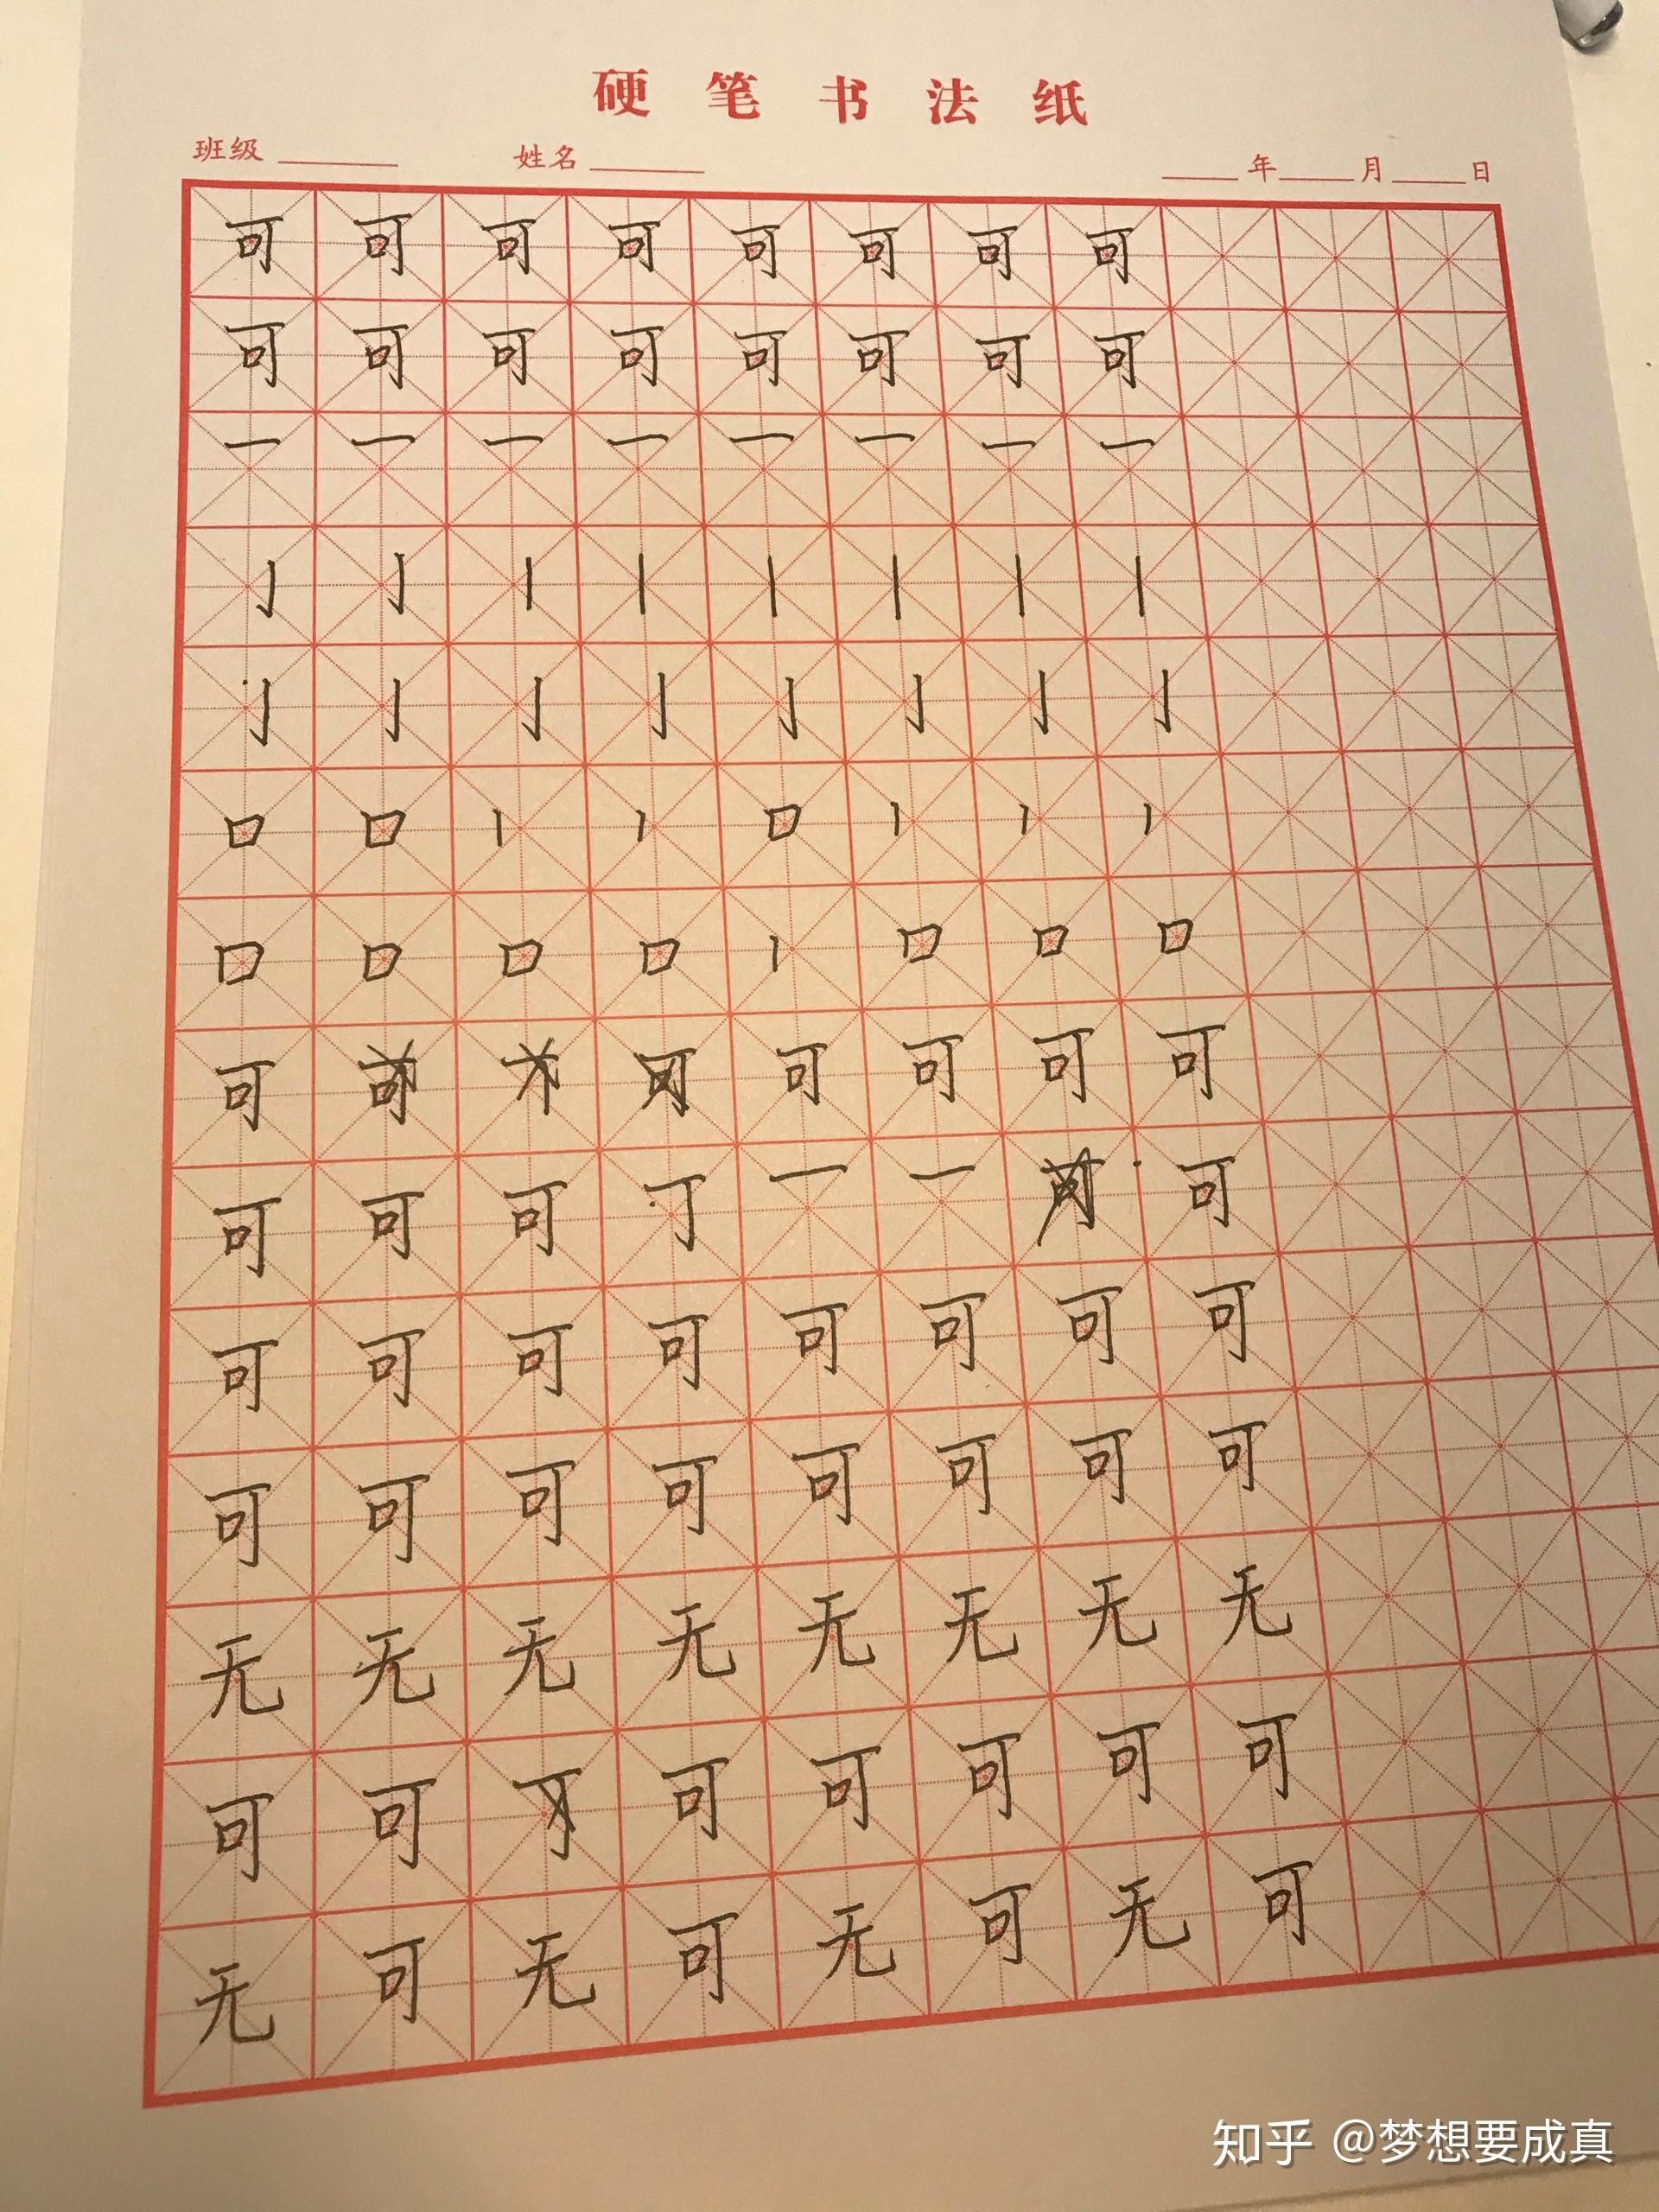 硬笔书法纸
班级 姓名 年 月 日
可 可 可 可 可 可 可 可
可 可 可 可 可 可 可 可
一 一 一 一 一 一 一 一
亅 亅 丨 丨 丨 丨 丨 丨
亅 亅 亅 亅 亅 亅 亅 亅
口 口 丨 丨 口 丨 丨 丨
口 口 口 口 丨 口 口 口
可 可 可 可 可 可 可
可 可 可 丁 一 一 可 可
可 可 可 可 可 可 可 可
可 可 可 可 可 可 可 可
无 无 无 无 无 无 无 无
可 可 丁 可 可 可 可 可
无 可 无 可 无 可 无 可
知乎 @梦想要成真